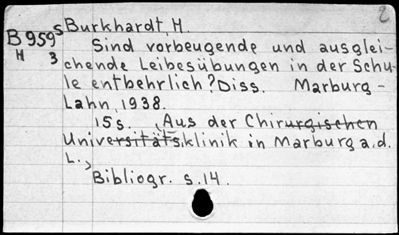 2
B 959s Burkhardt, H.
H 3 Sind vorbeugende und ausglei-
chende Leibesübungen in der Schu-
le entbehrlich? Diss. Marburg-
Lahn, 1938.
15s. Aus der Chirurgischen
Universitätsklinik in Marburg a.d.
L.,
Bibliogr. s.14.